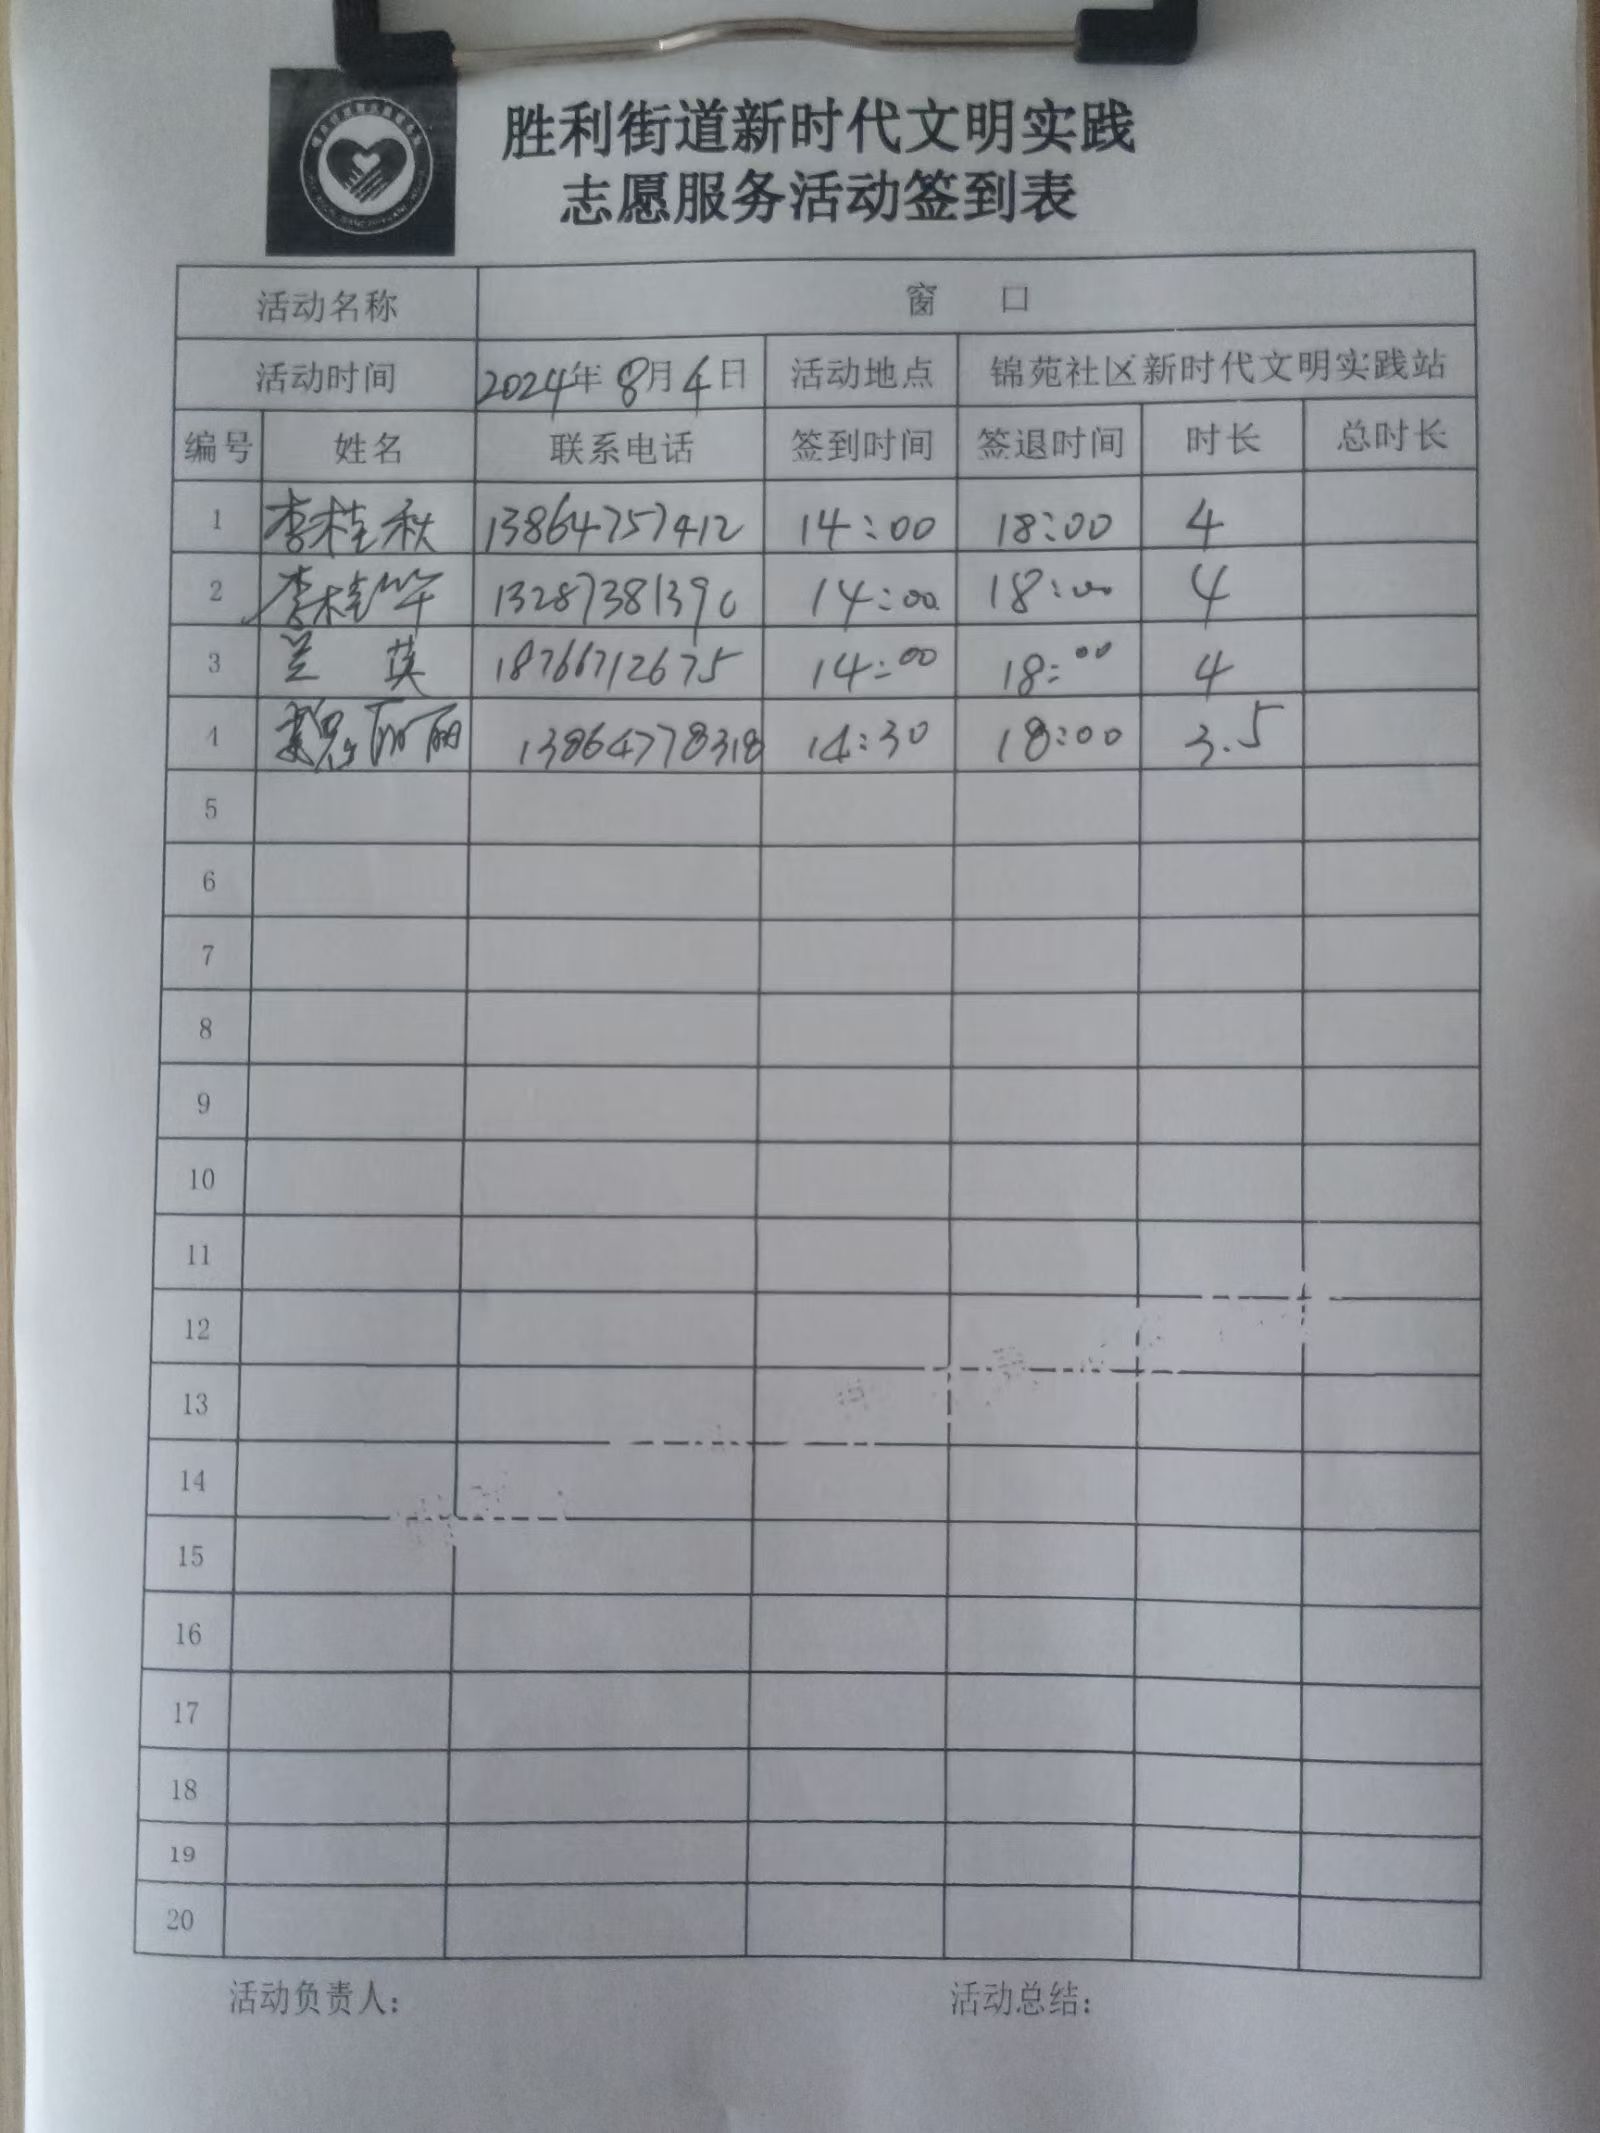 胜利街道新时代文明实践
志愿服务活动签到表
活动名称 窗 口
活动时间 2024年 8月4日 活动地点 锦苑社区新时代文明实践站
编号 姓名 联系电话 签到时间 签退时间 时长 总时长
1 李桂秋 13864757412 14:00 18:00 4
2 李桂华 13287381390 14:00 18:00 4
3 兰 英 18766712675 14:00 18:00 4
4 魏丽丽 13864778318 14:30 18:00 3.5
5
6
7
8
9
10
11
12
13
14
15
16
17
18
19
20
活动负责人: 活动总结: